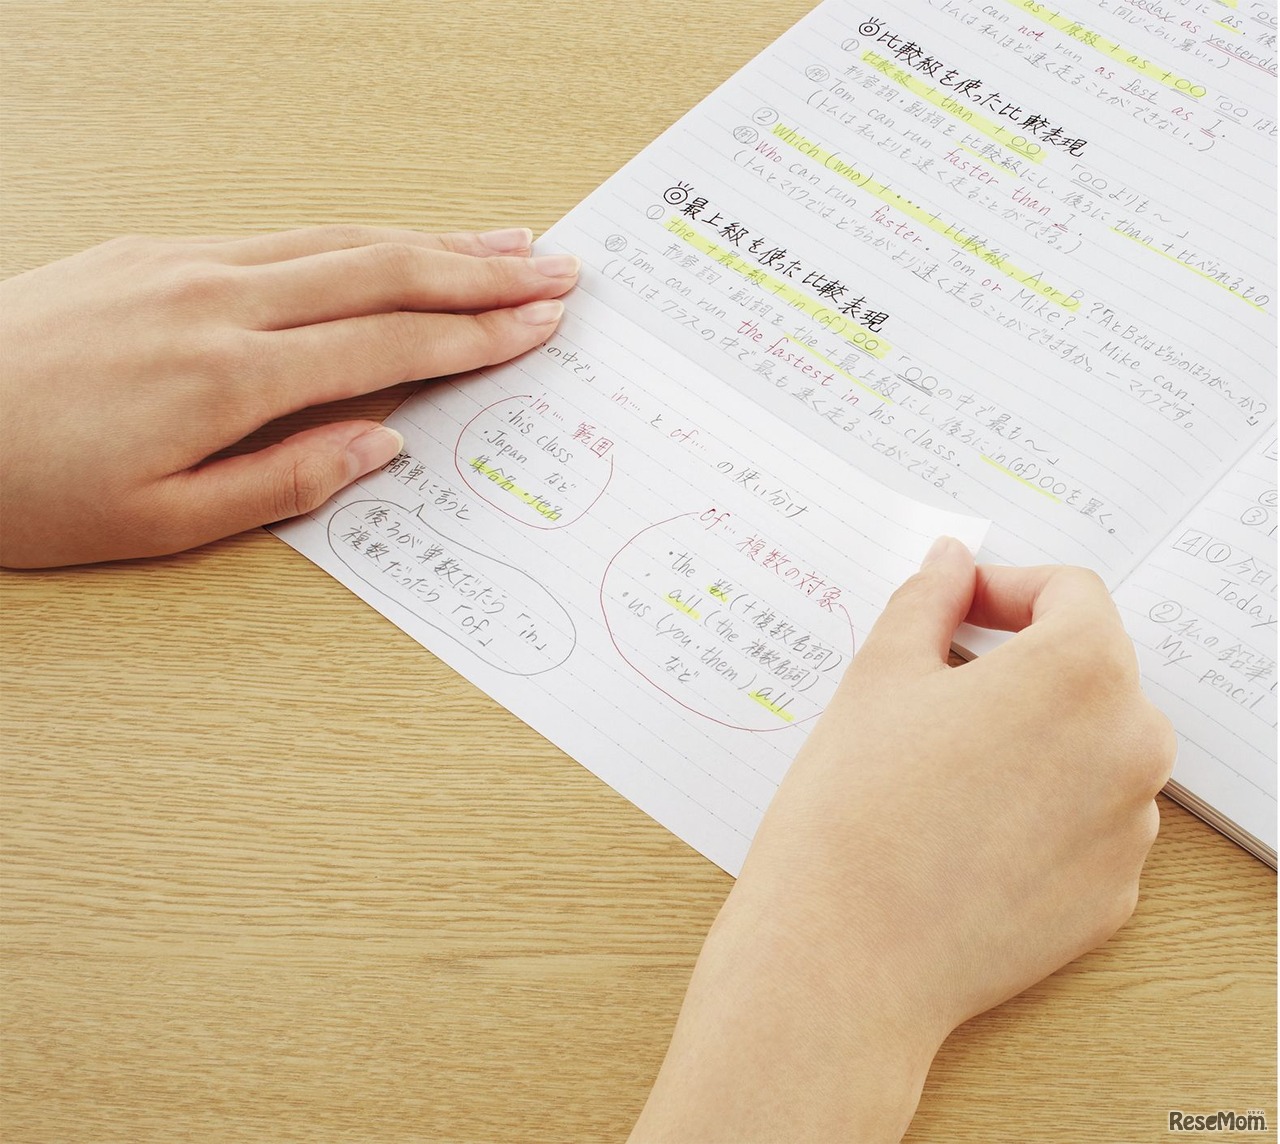 as yesterday.
as + 原級 + as + ○○
can not run as fast as I.
(トムは私ほど速く走ることができない。)
◎比較級を使った比較表現
① 比較級 + than + ○○ 「○○よりも〜」
形容詞・副詞を比較級にし、後ろに than + 比べられるもの
例 Tom can run faster than I.
(トムは私よりも速く走ることができる。)
② Which (who) + ・・・ + 比較級, A or B ? 「AとBではどちらのほうが〜か?」
例 Who can run faster. Tom or Mike? — Mike can.
(トムとマイクではどちらがより速く走ることができますか。— マイクです。
◎最上級を使った比較表現
① the + 最上級 + in (of) ○○ 「○○の中で最も〜」
形容詞・副詞を the + 最上級にし、後ろに in (of) ○○を置く。
例 Tom can run the fastest in his class.
(トムはクラスの中で最も速く走ることができる。
の中で」 in… と of… の使い分け
in… 範囲
・his class
・Japan など
集合名・地名
of… 複数の対象
・the 数 (+複数名詞)
・all (the 複数名詞)
・us (you・them) all
など
簡単に言うと
後ろが単数だったら「in」
複数だったら「of」
②
③
4 ① 今日
Today
② 私の鉛筆
My pencil
ReseMom.